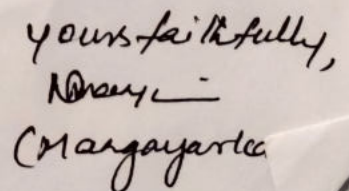 yours faithfully,
(Mangayarka